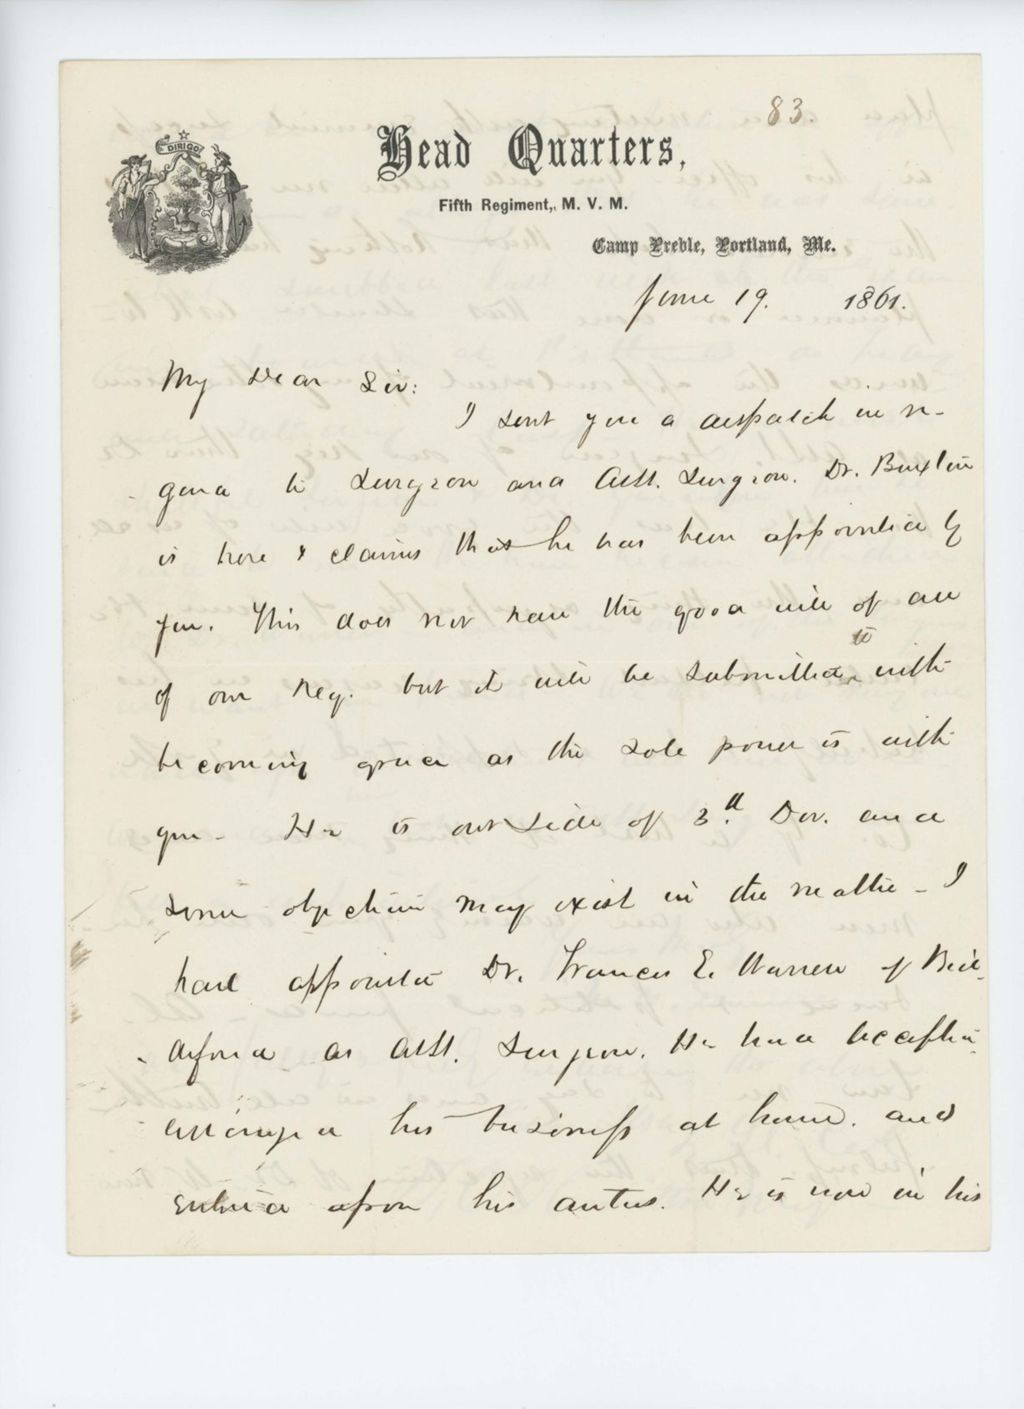 83.
DIRIGO
Head Quarters,
Fifth Regiment, M. V. M.
Camp Preble, Portland, Me.
June 19. 1861.
My Dear Sir:
I sent you a despatch in re-
gard to Surgeon and Asst. Surgeon. Dr. Buxton
is here & claims that he has been appointed by
you. This does not have the good will of all
of our Reg. but it will be submitted to with
becoming grace as the sole power is with
you - He is outside of 3d. Div. and
some objection may exist in the matter - I
had appointed Dr. Francis E. Warren of Bid-
deford as Asst. Surgeon. He had accepted
arranged his business at home. and
entered upon his duties. He is now in his